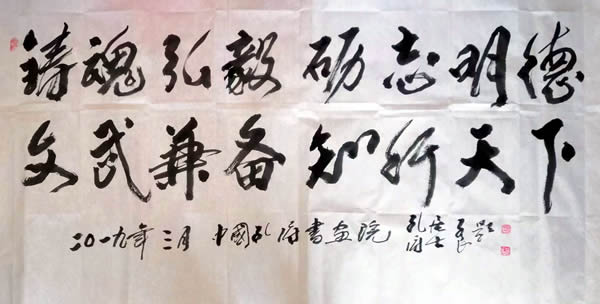 铸魂弘毅砺志明德
文武兼备知行天下
二〇一九年三月 中國孔府書画院 孔府